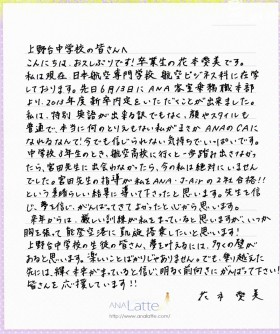 上野台中学校の皆さんへ
こんにちは、お久しぶりです！卒業生の
私は現在 日本航空専門学校 航空ビジネス科に在学
しております。先日6月13日にANA客室乗務職本部
より、2013年度新卒内定をいただくことが出来ました。
私は、特別 英語が出来る訳でもなく、顔やスタイルも
普通で、本当に何のとりえもない私がまさかANAのCAに
なれるなんて！今でも信じられない気持ちでいっぱいです。
中学校3年生のとき、航空高校に行くと一歩踏み出さなかっ
たら、宮田先生に出会わなかったら、今の私は絶対にいません
でした。宮田先生の指導が私をANA・J-Airの2社合格!!
という素晴らしい結果に導いて下さったと思います。先生を信
じ、夢を信じ、がんばってきてよかったと心から思います。
来年からは、厳しい訓練が私をまっていると思いますが、いつか
胸を張って能登空港に凱旋搭乗したいと思います！
上野台中学校の生徒の皆さん、夢を叶えるには、多くの壁が
あると思います。楽しいことばかりじゃありません。でも乗り越えた
先には、輝く未来がまっていると信じ、明るく前向きにがんばって下さい！
皆さんを応援しています!!
ANA Latte
http://www.analatte.com/